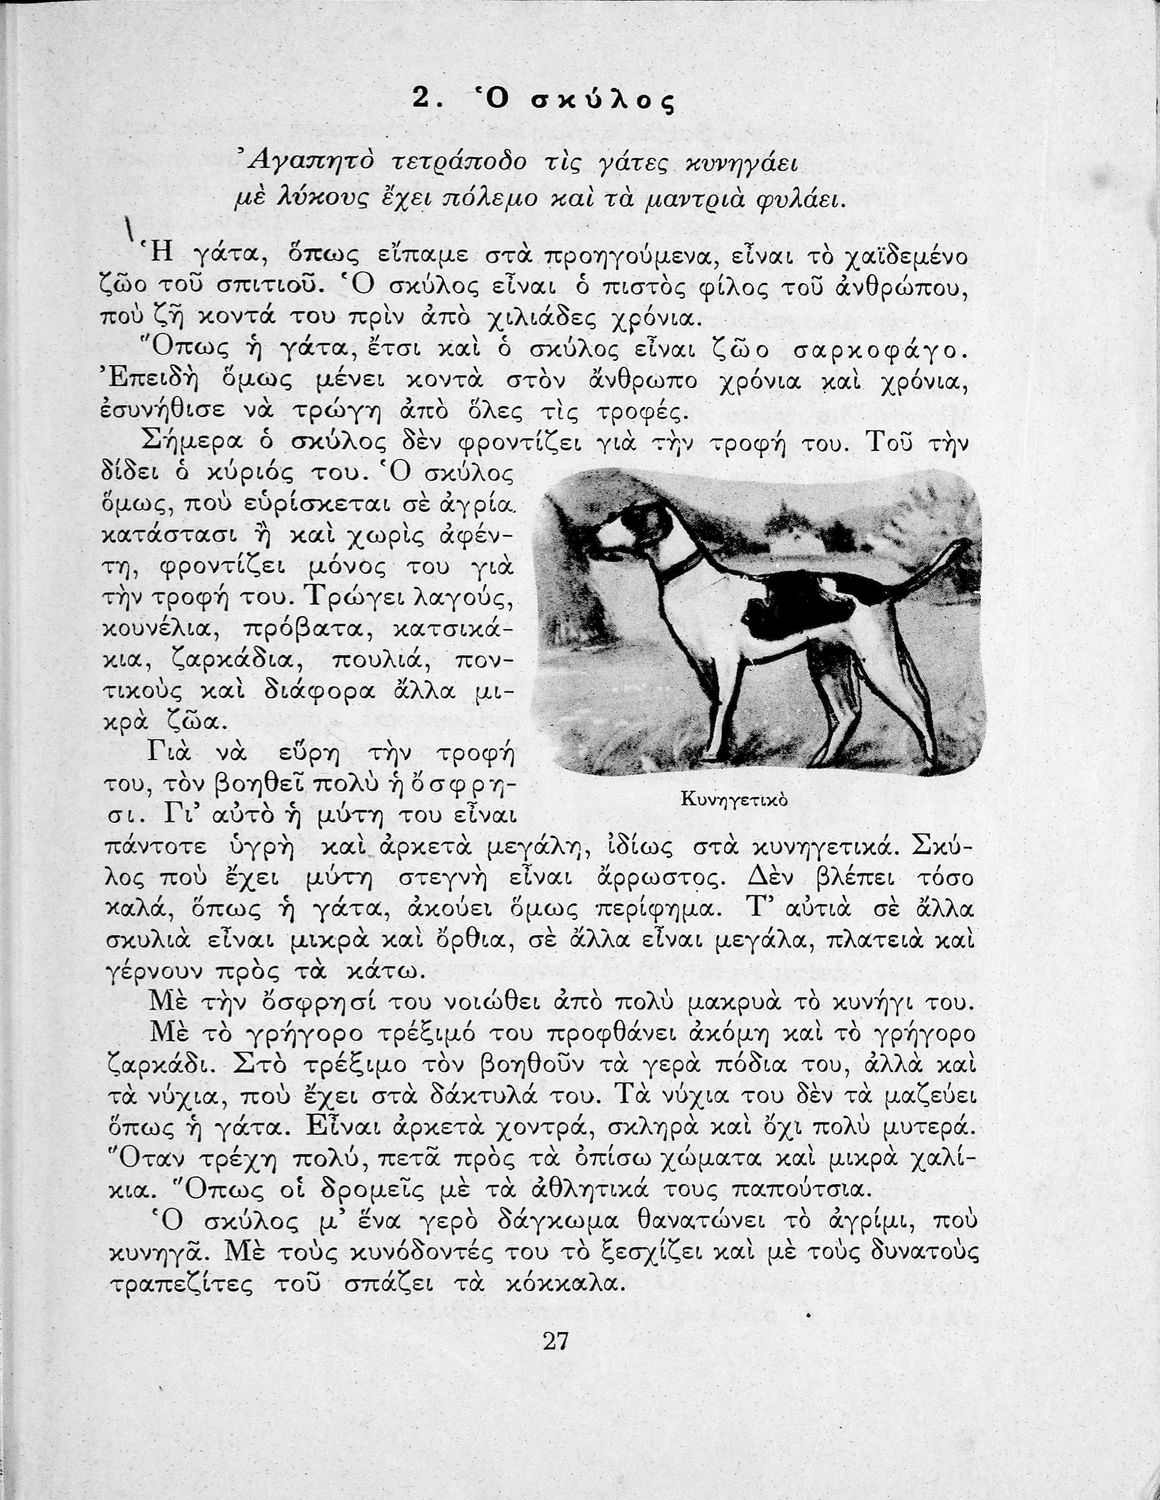 2. Ὁ σκύλος
Ἀγαπητὸ τετράποδο τὶς γάτες κυνηγάει
μὲ λύκους ἔχει πόλεμο καὶ τὰ μαντριὰ φυλάει.
Ἡ γάτα, ὅπως εἴπαμε στὰ προηγούμενα, εἶναι τὸ χαϊδεμένο
ζῶο τοῦ σπιτιοῦ. Ὁ σκύλος εἶναι ὁ πιστὸς φίλος τοῦ ἀνθρώπου,
ποὺ ζῆ κοντά του πρὶν ἀπὸ χιλιάδες χρόνια.
Ὅπως ἡ γάτα, ἔτσι καὶ ὁ σκύλος εἶναι ζῶο σαρκοφάγο.
Ἐπειδὴ ὅμως μένει κοντὰ στὸν ἄνθρωπο χρόνια καὶ χρόνια,
ἐσυνήθισε νὰ τρώγη ἀπὸ ὅλες τὶς τροφές.
Σήμερα ὁ σκύλος δὲν φροντίζει γιὰ τὴν τροφή του. Τοῦ τὴν
δίδει ὁ κύριός του. Ὁ σκύλος
ὅμως, ποὺ εὑρίσκεται σὲ ἀγρία
κατάστασι ἢ καὶ χωρὶς ἀφέν-
τη, φροντίζει μόνος του γιὰ
τὴν τροφή του. Τρώγει λαγούς,
κουνέλια, πρόβατα, κατσικά-
κια, ζαρκάδια, πουλιά, πον-
τικοὺς καὶ διάφορα ἄλλα μι-
κρὰ ζῶα.
Γιὰ νὰ εὕρη τὴν τροφή
του, τὸν βοηθεῖ πολὺ ἡ ὄσφρη-
σι. Γι' αὐτὸ ἡ μύτη του εἶναι
Κυνηγετικὸ
πάντοτε ὑγρὴ καὶ ἀρκετὰ μεγάλη, ἰδίως στὰ κυνηγετικά. Σκύ-
λος ποὺ ἔχει μύτη στεγνὴ εἶναι ἄρρωστος. Δὲν βλέπει τόσο
καλά, ὅπως ἡ γάτα, ἀκούει ὅμως περίφημα. Τ' αὐτιὰ σὲ ἄλλα
σκυλιὰ εἶναι μικρὰ καὶ ὄρθια, σὲ ἄλλα εἶναι μεγάλα, πλατειὰ καὶ
γέρνουν πρὸς τὰ κάτω.
Μὲ τὴν ὄσφρησί του νοιώθει ἀπὸ πολὺ μακρυὰ τὸ κυνήγι του.
Μὲ τὸ γρήγορο τρέξιμό του προφθάνει ἀκόμη καὶ τὸ γρήγορο
ζαρκάδι. Στὸ τρέξιμο τὸν βοηθοῦν τὰ γερὰ πόδια του, ἀλλὰ καὶ
τὰ νύχια, ποὺ ἔχει στὰ δάκτυλά του. Τὰ νύχια του δὲν τὰ μαζεύει
ὅπως ἡ γάτα. Εἶναι ἀρκετὰ χοντρά, σκληρὰ καὶ ὄχι πολὺ μυτερά.
Ὅταν τρέχη πολύ, πετᾶ πρὸς τὰ ὀπίσω χώματα καὶ μικρὰ χαλί-
κια. Ὅπως οἱ δρομεῖς μὲ τὰ ἀθλητικά τους παπούτσια.
Ὁ σκύλος μ' ἕνα γερὸ δάγκωμα θανατώνει τὸ ἀγρίμι, ποὺ
κυνηγᾶ. Μὲ τοὺς κυνόδοντές του τὸ ξεσχίζει καὶ μὲ τοὺς δυνατοὺς
τραπεζίτες τοῦ σπάζει τὰ κόκκαλα.
27